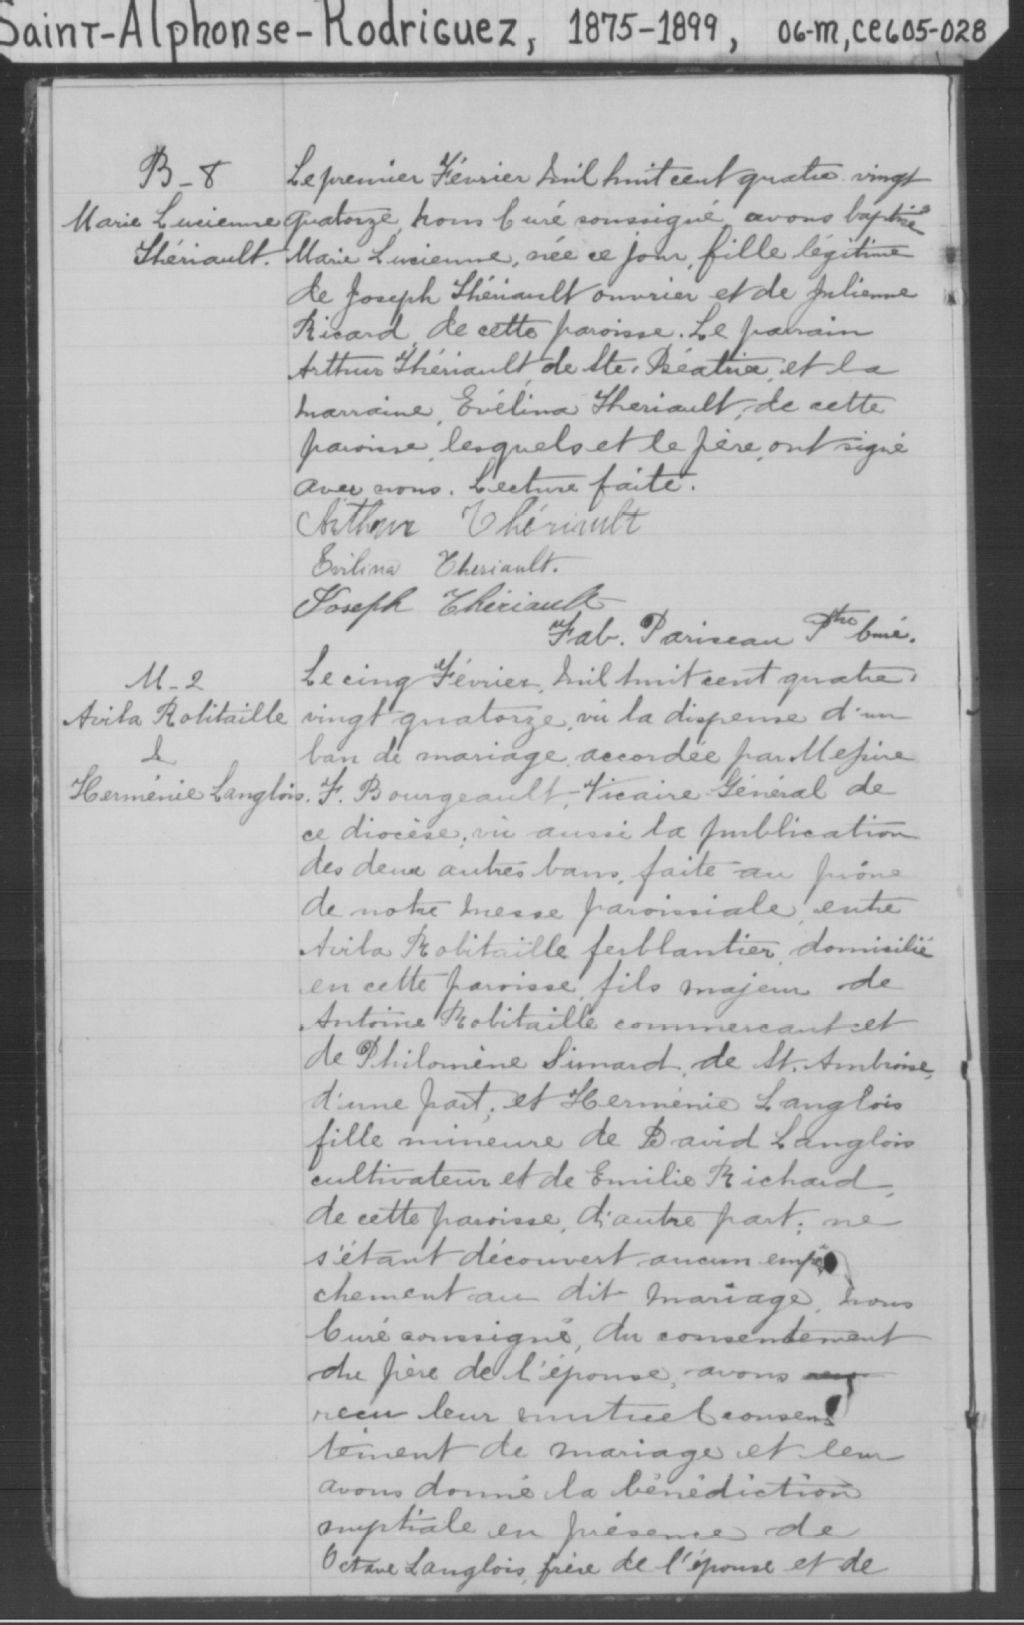 Saint-Alphonse-Rodriguez, 1875-1899, 06-M, CE605-028
B-8
Marie Lucienne
Thériault.
Le premier Février mil huit cent quatre vingt
quatorze, nous Curé soussigné, avons baptisé
Marie Lucienne, née ce jour, fille légitime
de Joseph Thériault ouvrier et de Julienne
Ricard, de cette paroisse. Le parrain
Arthur Thériault, de Ste. Béatrice, et la
marraine, Evélina Theriault, de cette
paroisse, lesquels et le père, ont signé
avec nous. Lecture faite.
Arthur Thériault
Evilina Theriault.
Joseph Thériault
Fab. Pariseau Ptre Curé.
M-2
Avila Robitaille
&
Herménie Langlois.
Le cinq Février, mil huit cent quatre
vingt quatorze, vu la dispense d'un
ban de mariage accordée par Messire
F. Bourgeault, Vicaire Général de
ce diocèse; vu aussi la publication
des deux autres bans, faite au prône
de notre messe paroissiale, entre
Avila Robitaille ferblantier, domicilié
en cette paroisse, fils majeur de
Antoine Robitaille commercant et
de Philomène Simard, de St. Ambroise,
d'une part; et Herménie Langlois
fille mineure de David Langlois
cultivateur et de Emilie Richard,
de cette paroisse, d'autre part; ne
s'étant découvert aucun empê
chement au dit mariage, nous
Curé soussigné, du consentement
du père de l'épouse, avons
recu leur mutuel consen
tement de mariage et leur
avons donné la bénédiction
nuptiale en présence de
Octave Langlois, frère de l'épouse et de